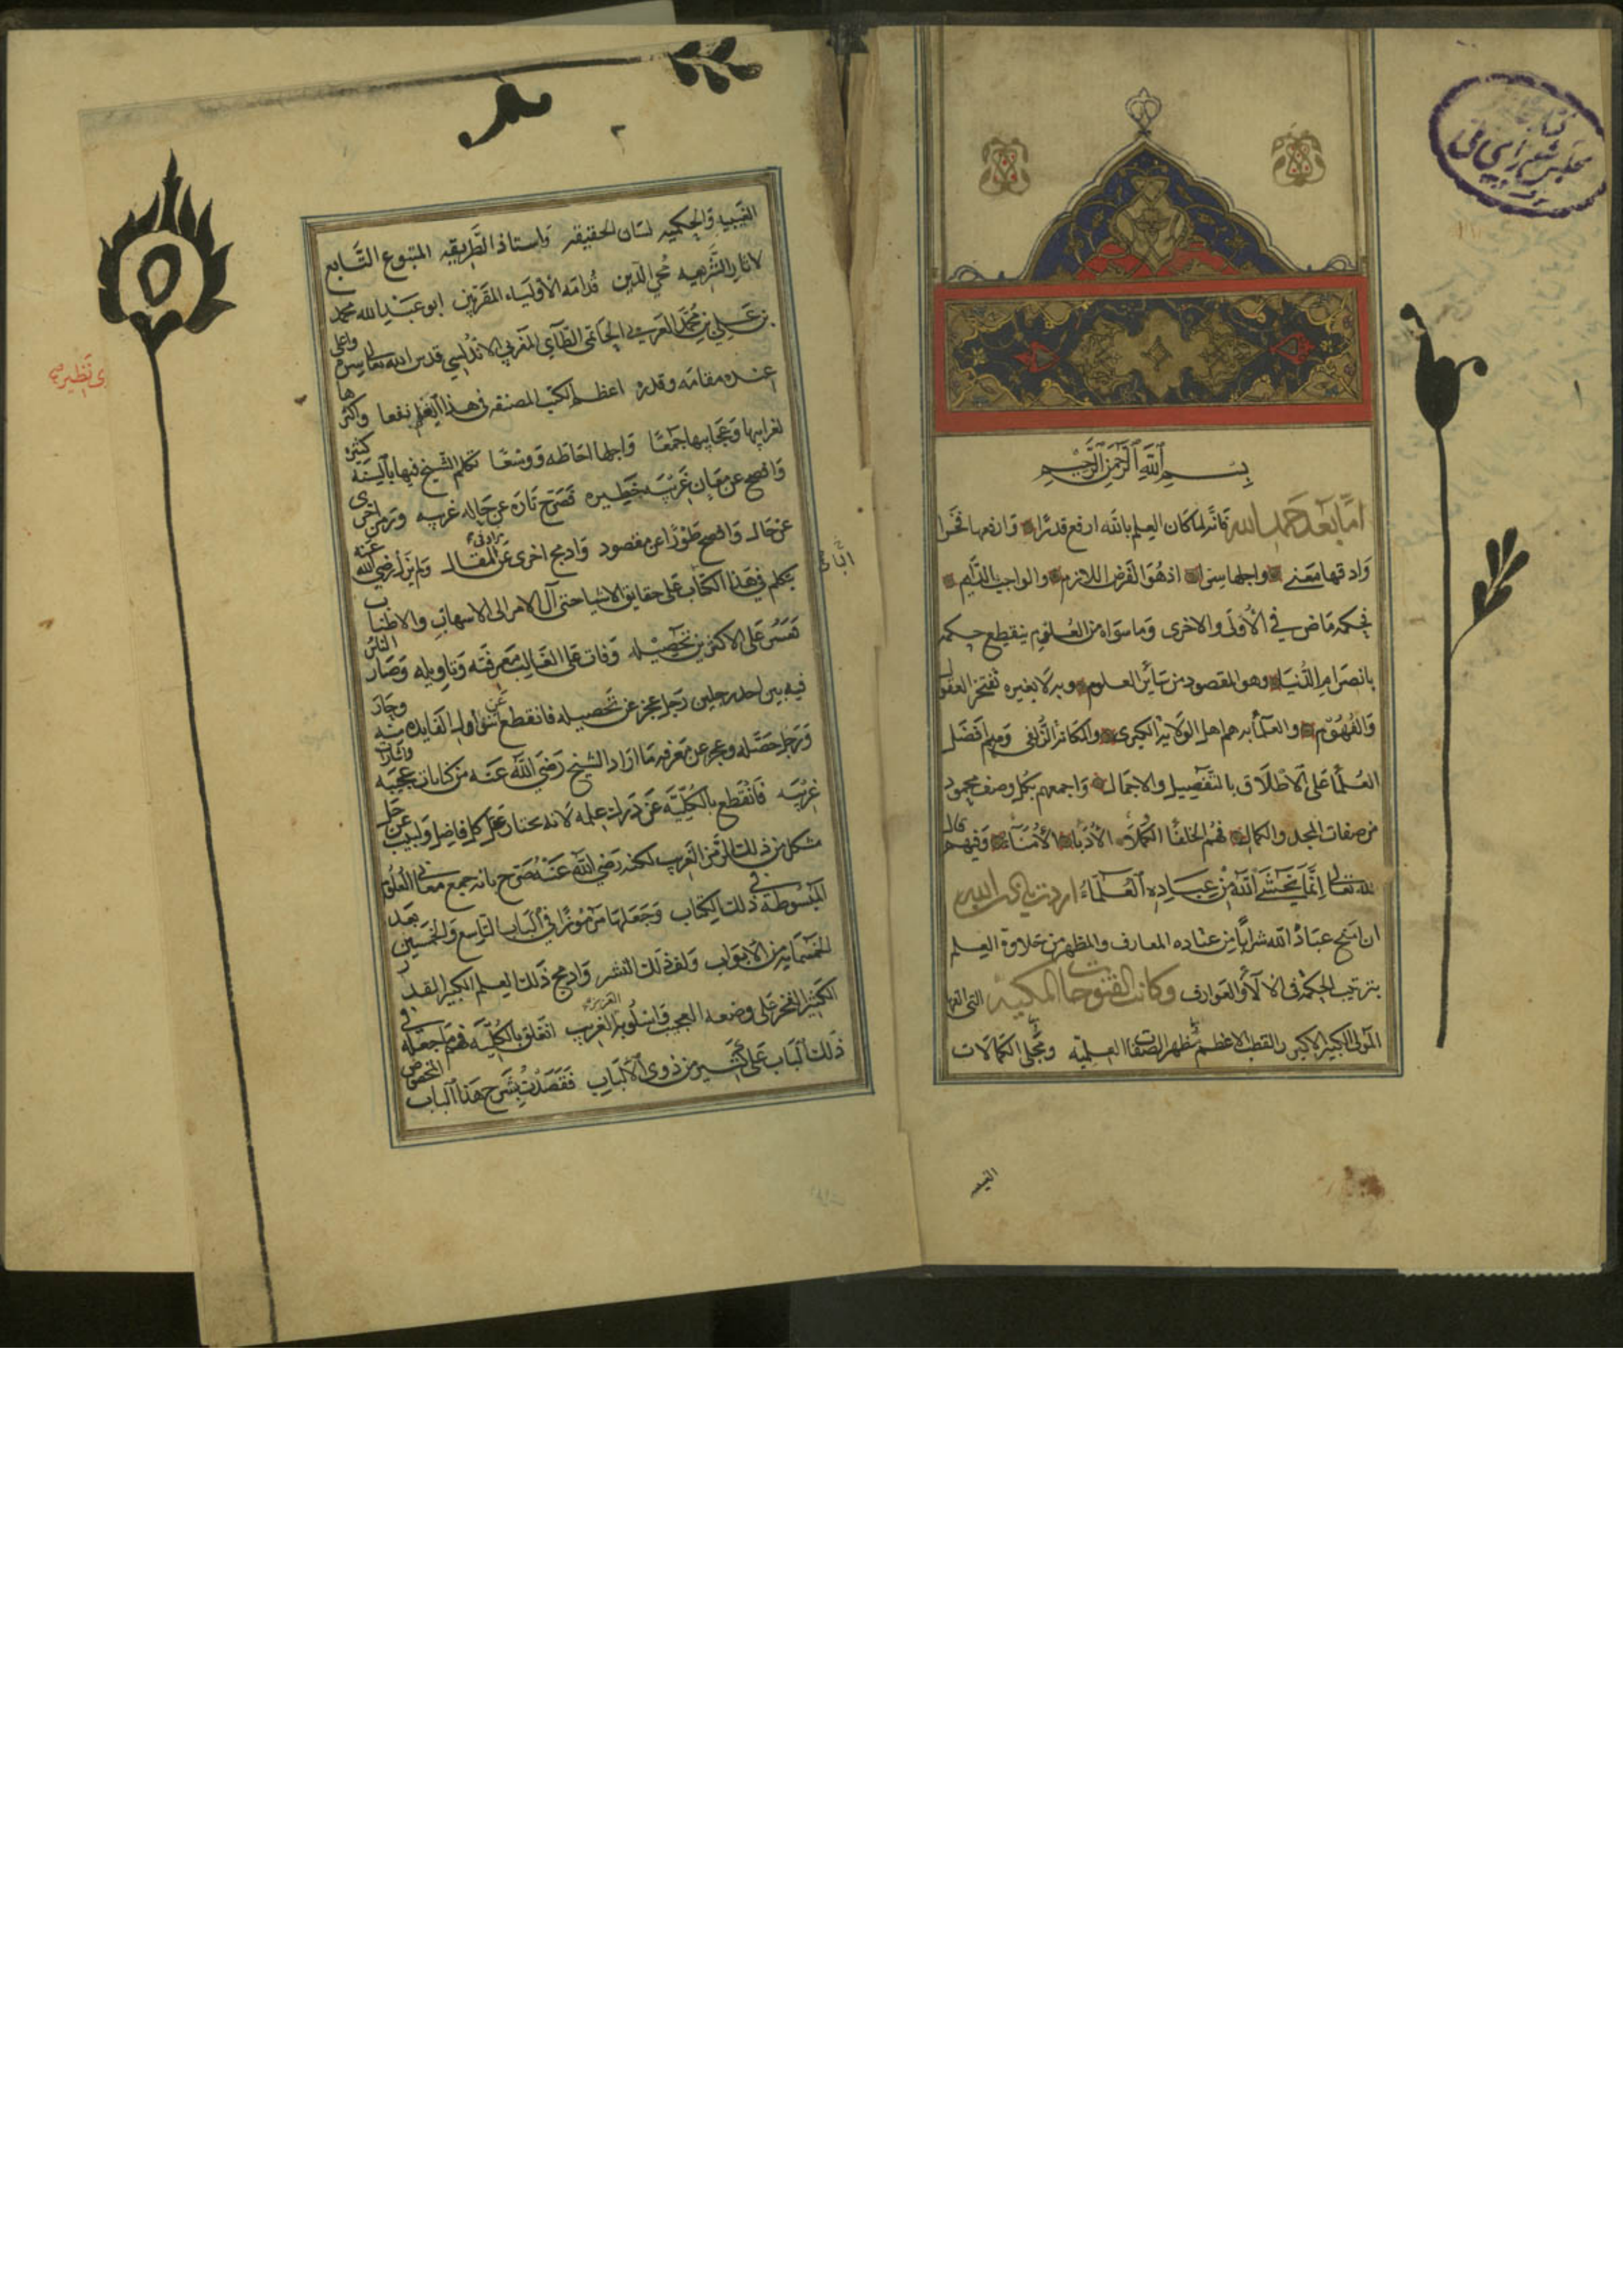 بسم الله الرحمن الرحيم
اما بعد حمد الله فانه لما كان العلم بالله ارفع قدرا وارفعها فخرا
وادقها معنى واجلها سرا اذ هو الفرض اللازم والواجب الدايم
فحكمه ماض في الاولى والاخرى وما سواه من العلوم ينقطع حكمه
بانصرام الدنيا وهو المقصود من سائر العلوم وبه لا بغيره تفتخر العقول
والفهوم والعلماء به هم اهل الولاية الكبرى والمكانة الزلفى ومنهم افضل
العلما على الاطلاق بالتفصيل والاجمال واجمعهم بكل وصف محمود
من صفات المجد والكمال فهم الخلفا الكملا الادبا الامناء وفيهم قال
الله تعالى انما يخشى الله من عباده العلماء اردت
ان امنح عباد الله شرابا من هذه المعارف والمظهر من حلاوة العلم
بترتيب الحكمة في الالآء والعوارف وكانت الفتوحات المكية التي الفها
المولى الكبير الاكبر والقطب الاعظم مظهر الصفات العلمية ومجلى الكمالات
الغيبيه
٢
الغيبيه والحكميه لسان الحقيقه واستاذ الطريقه المتبوع التابع
لاثار الشريعه محي الدين قدامه الاولياء المقربين ابو عبد الله محمد
بن علي بن محمد العربي الحاتمي الطآي المغربي الاندلسي قدس الله تعالى سره واعلى
عنده مقامه وقدره اعظم الكتب المصنفه في هذا العلم نفعا واكثرها
لغرايبها وعجايبها جمعا واجلها احاطه ووسعا تكلم الشيخ فيها بالسنه كثيره
وافصح عن معان غريبه خطيره فصرح تاره عن حاله غريبه ورمز اخرى
عن حال وافصح طورا عن مقصود وادمج اخرى عن المقال ولم يزل رضي الله عنه
يتكلم في هذا الكتاب على حقايق الاشيا حتى آل الامر الى الاسهاب والاطناب
تعسر على الاكثرين تحصيله وفات على الغالب معرفته وتاويله وصار الناس
فيه بين احد رجلين رجل عجز عن تحصيله فانقطع عن تناول الفايده منه وحاد
ورجل حصله وعجز عن معرفه ما اراد الشيخ رضي الله عنه من كنايات عجيبه واشارات
غريبه فانقطع بالكليه عن درك علمه لانه يحتار عقل كل فاضل ولبيب عن حل
مشكل من ذلك الرمز الغريب لكنه رضي الله عنه صرح بانه جمع معاني العلوم
المبسوطة في ذلك الكتاب وجعلها مرموزا في الباب التاسع والخمسين بعد
الخمسمايه من الابواب ولف ذلك النشر وادمج ذلك العلم الكبير القدر
الكثير الفخر على وضعه العجيب واسلوبه الغريب انغلق بالكليه فهم ما جعله في
ذلك الباب على كثير من ذوي الالباب فقصدت بشرح هذا الباب المخصوص